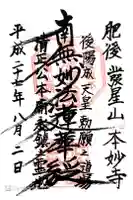 肥後 發星山 本妙寺
後陽成天皇勅願道場
南無妙法蓮華経
清正公本廟
霊地
平成二十七年八月二日